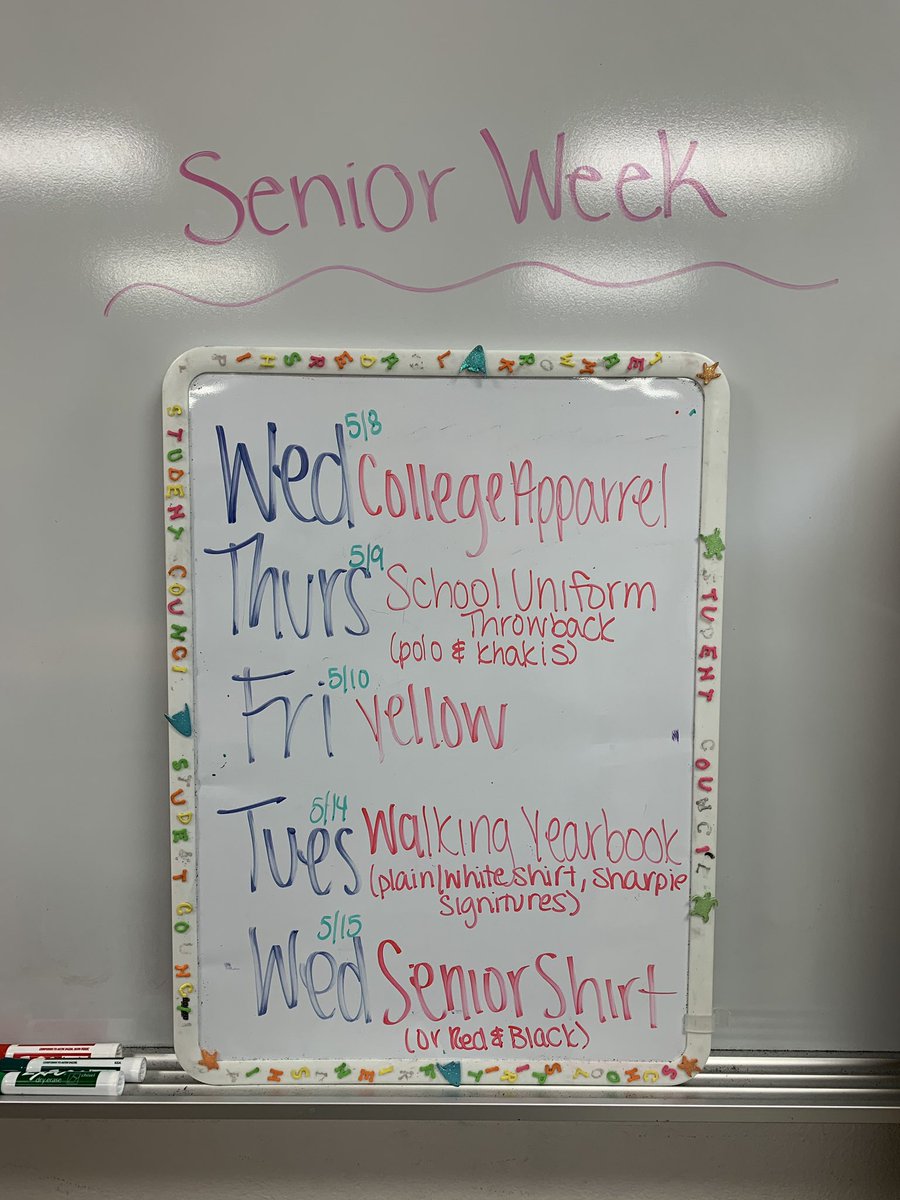 Senior Week
LEADERSHIP
TEAMWORK
STUDENT COUNCIL
STUDENT COUNCIL
STUDENT COUNCIL
Wed 5/8 College Apparrel
Thurs 5/9 School Uniform
Throwback
(polo & khakis)
Fri 5/10 yellow
Tues 5/14 Walking Yearbook
(plain/white shirt, sharpie
signitures)
Wed 5/15 Senior Shirt
(or Red & Black)
SCHOOL SPIRIT